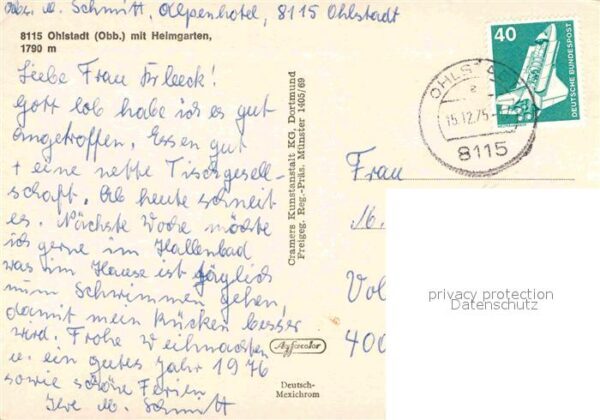 Abs. M. Schmitt, Alpenhotel, 8115 Ohlstadt
8115 Ohlstadt (Obb.) mit Heimgarten,
1790 m
Liebe Frau
Gott lob habe ich es gut
angetroffen. Essen gut
+ eine nette Tischgesell-
schaft. Ab heute schneit
es. Nächste Woche möchte
ich gerne im Hallenbad
was im Hause ist täglich
zum Schwimmen gehen,
damit mein Rücken besser
wird. Frohe Weihnachten
u. ein gutes Jahr 1976
sowie schöne Ferien
Ihre M. Schmitt
Cramers Kunstanstalt KG, Dortmund
Freigeg. Reg.-Präs. Münster 1405/69
Agfacolor
Deutsch-
Mexichrom
40
DEUTSCHE BUNDESPOST
OHLSTADT
15.12.75
8115
Frau
M.
400
privacy protection
Datenschutz